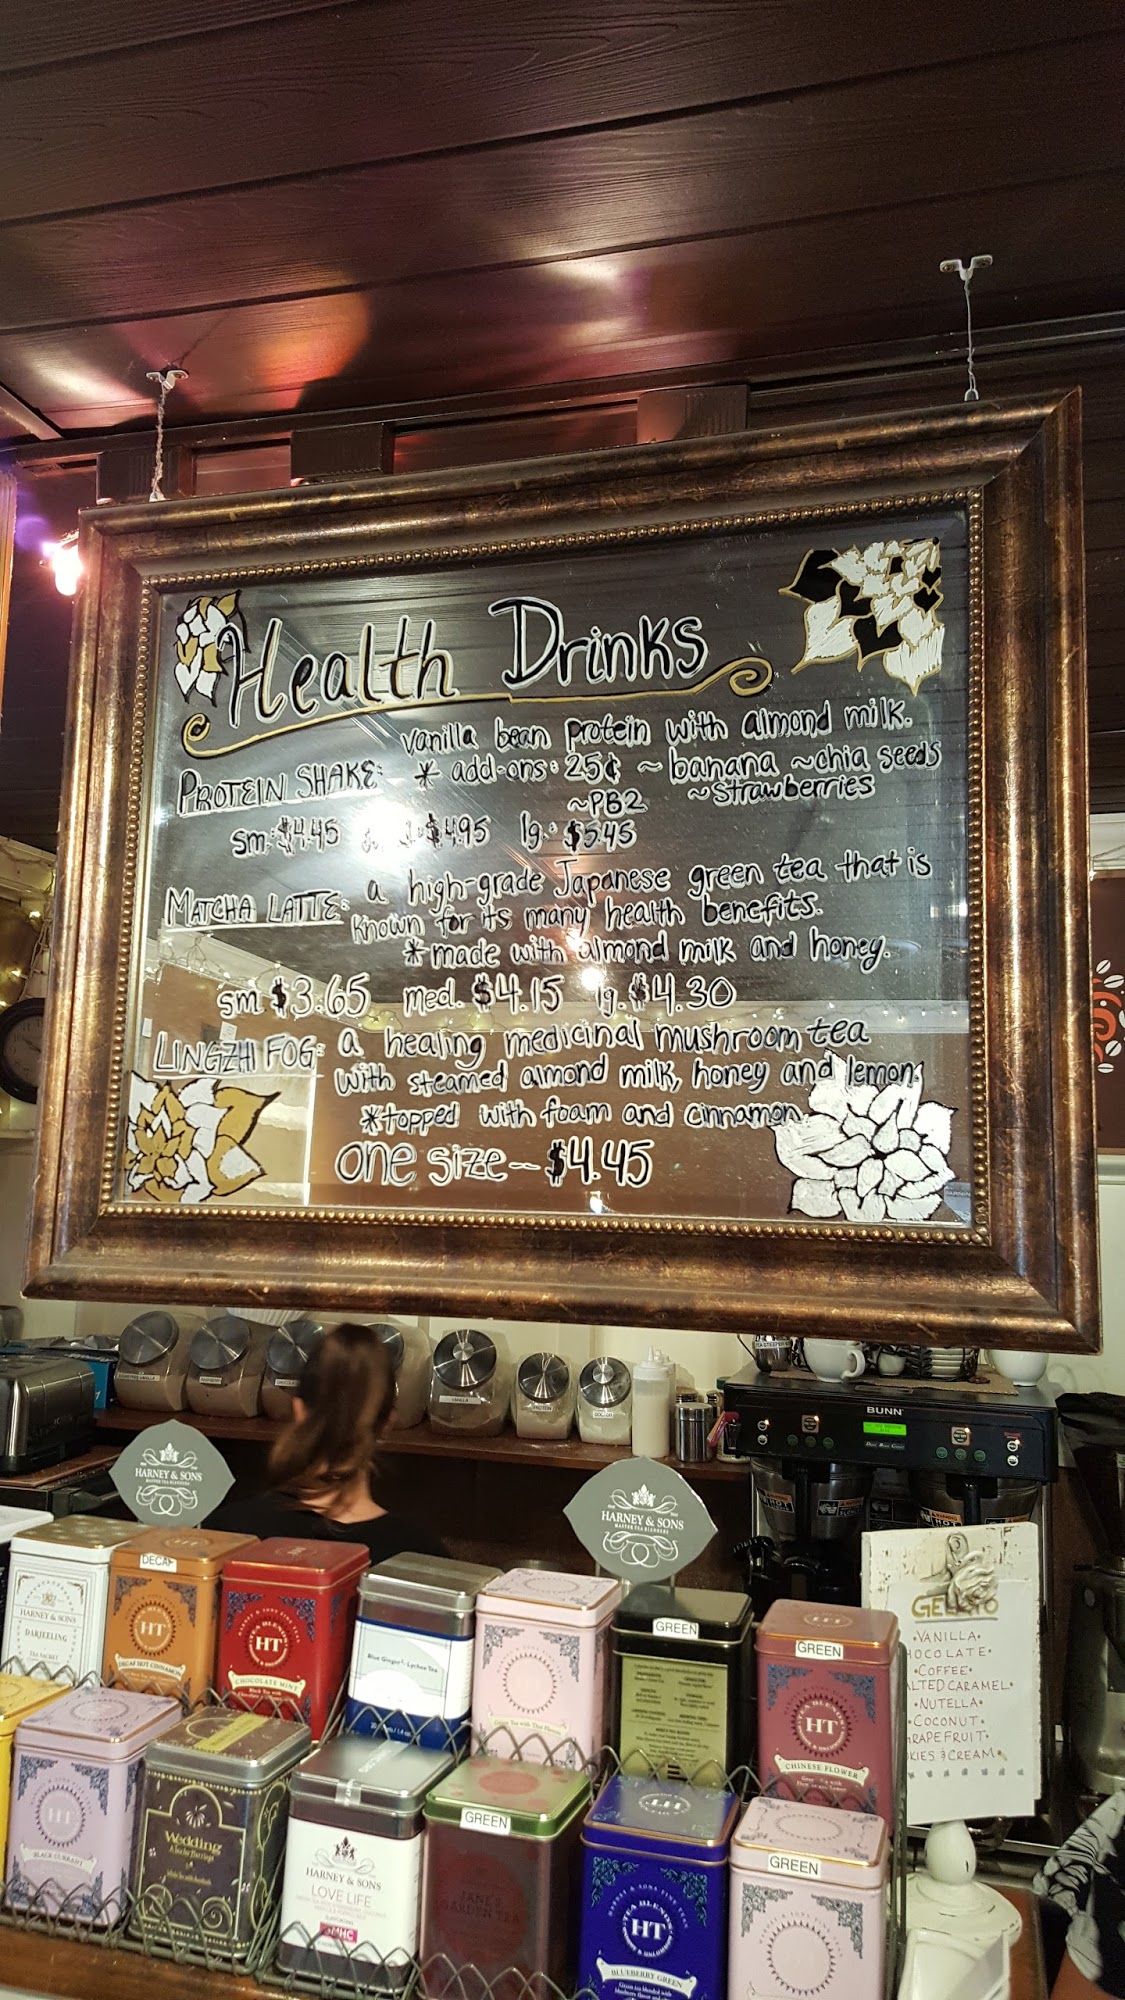 Health Drinks
vanilla bean protein with almond milk.
PROTEIN SHAKE: * add-ons: 25¢ ~ banana ~chia seeds
~PB2 ~strawberries
sm: $4.45 $4.95 lg: $5.45
MATCHA LATTE: a high-grade Japanese green tea that is
known for its many health benefits.
*made with almond milk and honey.
sm $3.65 med. $4.15 lg. $4.30
LINGZHI FOG: a healing medicinal mushroom tea
with steamed almond milk, honey and lemon.
*topped with foam and cinnamon
one size-- $4.45
VANILLA
BUNN
HARNEY & SONS
MASTER TEA BLENDERS
HARNEY & SONS
MASTER TEA BLENDERS
HARNEY & SONS
DARJEELING
DECAF
HT
DECAF HOT CINNAMON
HT
CHOCOLATE MINT
Blue Ginger Lychee Tea
GREEN
GREEN
HT
CHINESE FLOWER
GELATO
•VANILLA•
HOCOLATE•
•COFFEE•
ALTED CARAMEL•
•NUTELLA•
•COCONUT•
GRAPEFRUIT•
KIES & CREAM•
HT
BLACK CURRANT
Wedding
HARNEY & SONS
LOVE LIFE
SUPPORTING
MHC
GREEN
JANE'S
GARDEN TEA
HT
HT
BLUEBERRY GREEN
GREEN